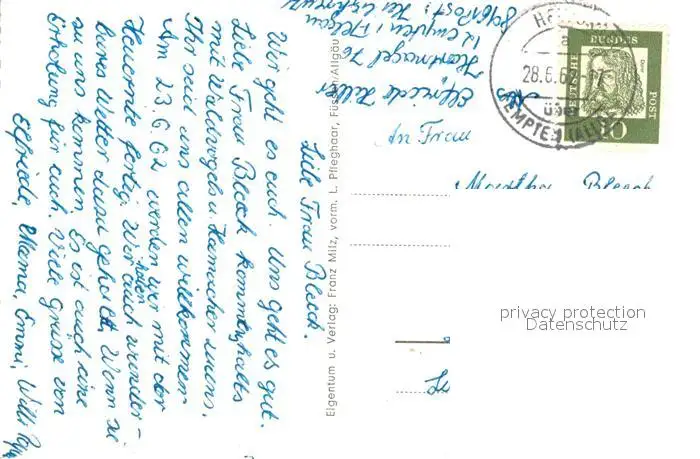 Liebe Frau Bleeck.
Wie geht es euch. Uns geht es gut.
Liebe Frau Bleeck kommen halts
mit Waldvogel u. Hamacher zu uns.
Ihr seid uns allen willkommen
Am 23.6.62 werden wir mit der
Heuernte fertig. Wir haben auch wunder-
bares Wetter dazu gehabt. Wenn sie
zu uns kommen. Es ist auch eine
Erholung für euch. Viele Grüsse von
Elfriede, Mama, Emmi, Willi
Eigentum u. Verlag: Franz Milz, vorm. L. Pfleghaar, Füssen/Allgäu
Abs. Elfriede Zeller
Hartnagel 76
8961 Post:
28.6.62
über
KEMPTEN (ALLG
DEUTSCHE BUNDES POST
10
An Frau
Martha Bleeck
privacy protection
Datenschutz